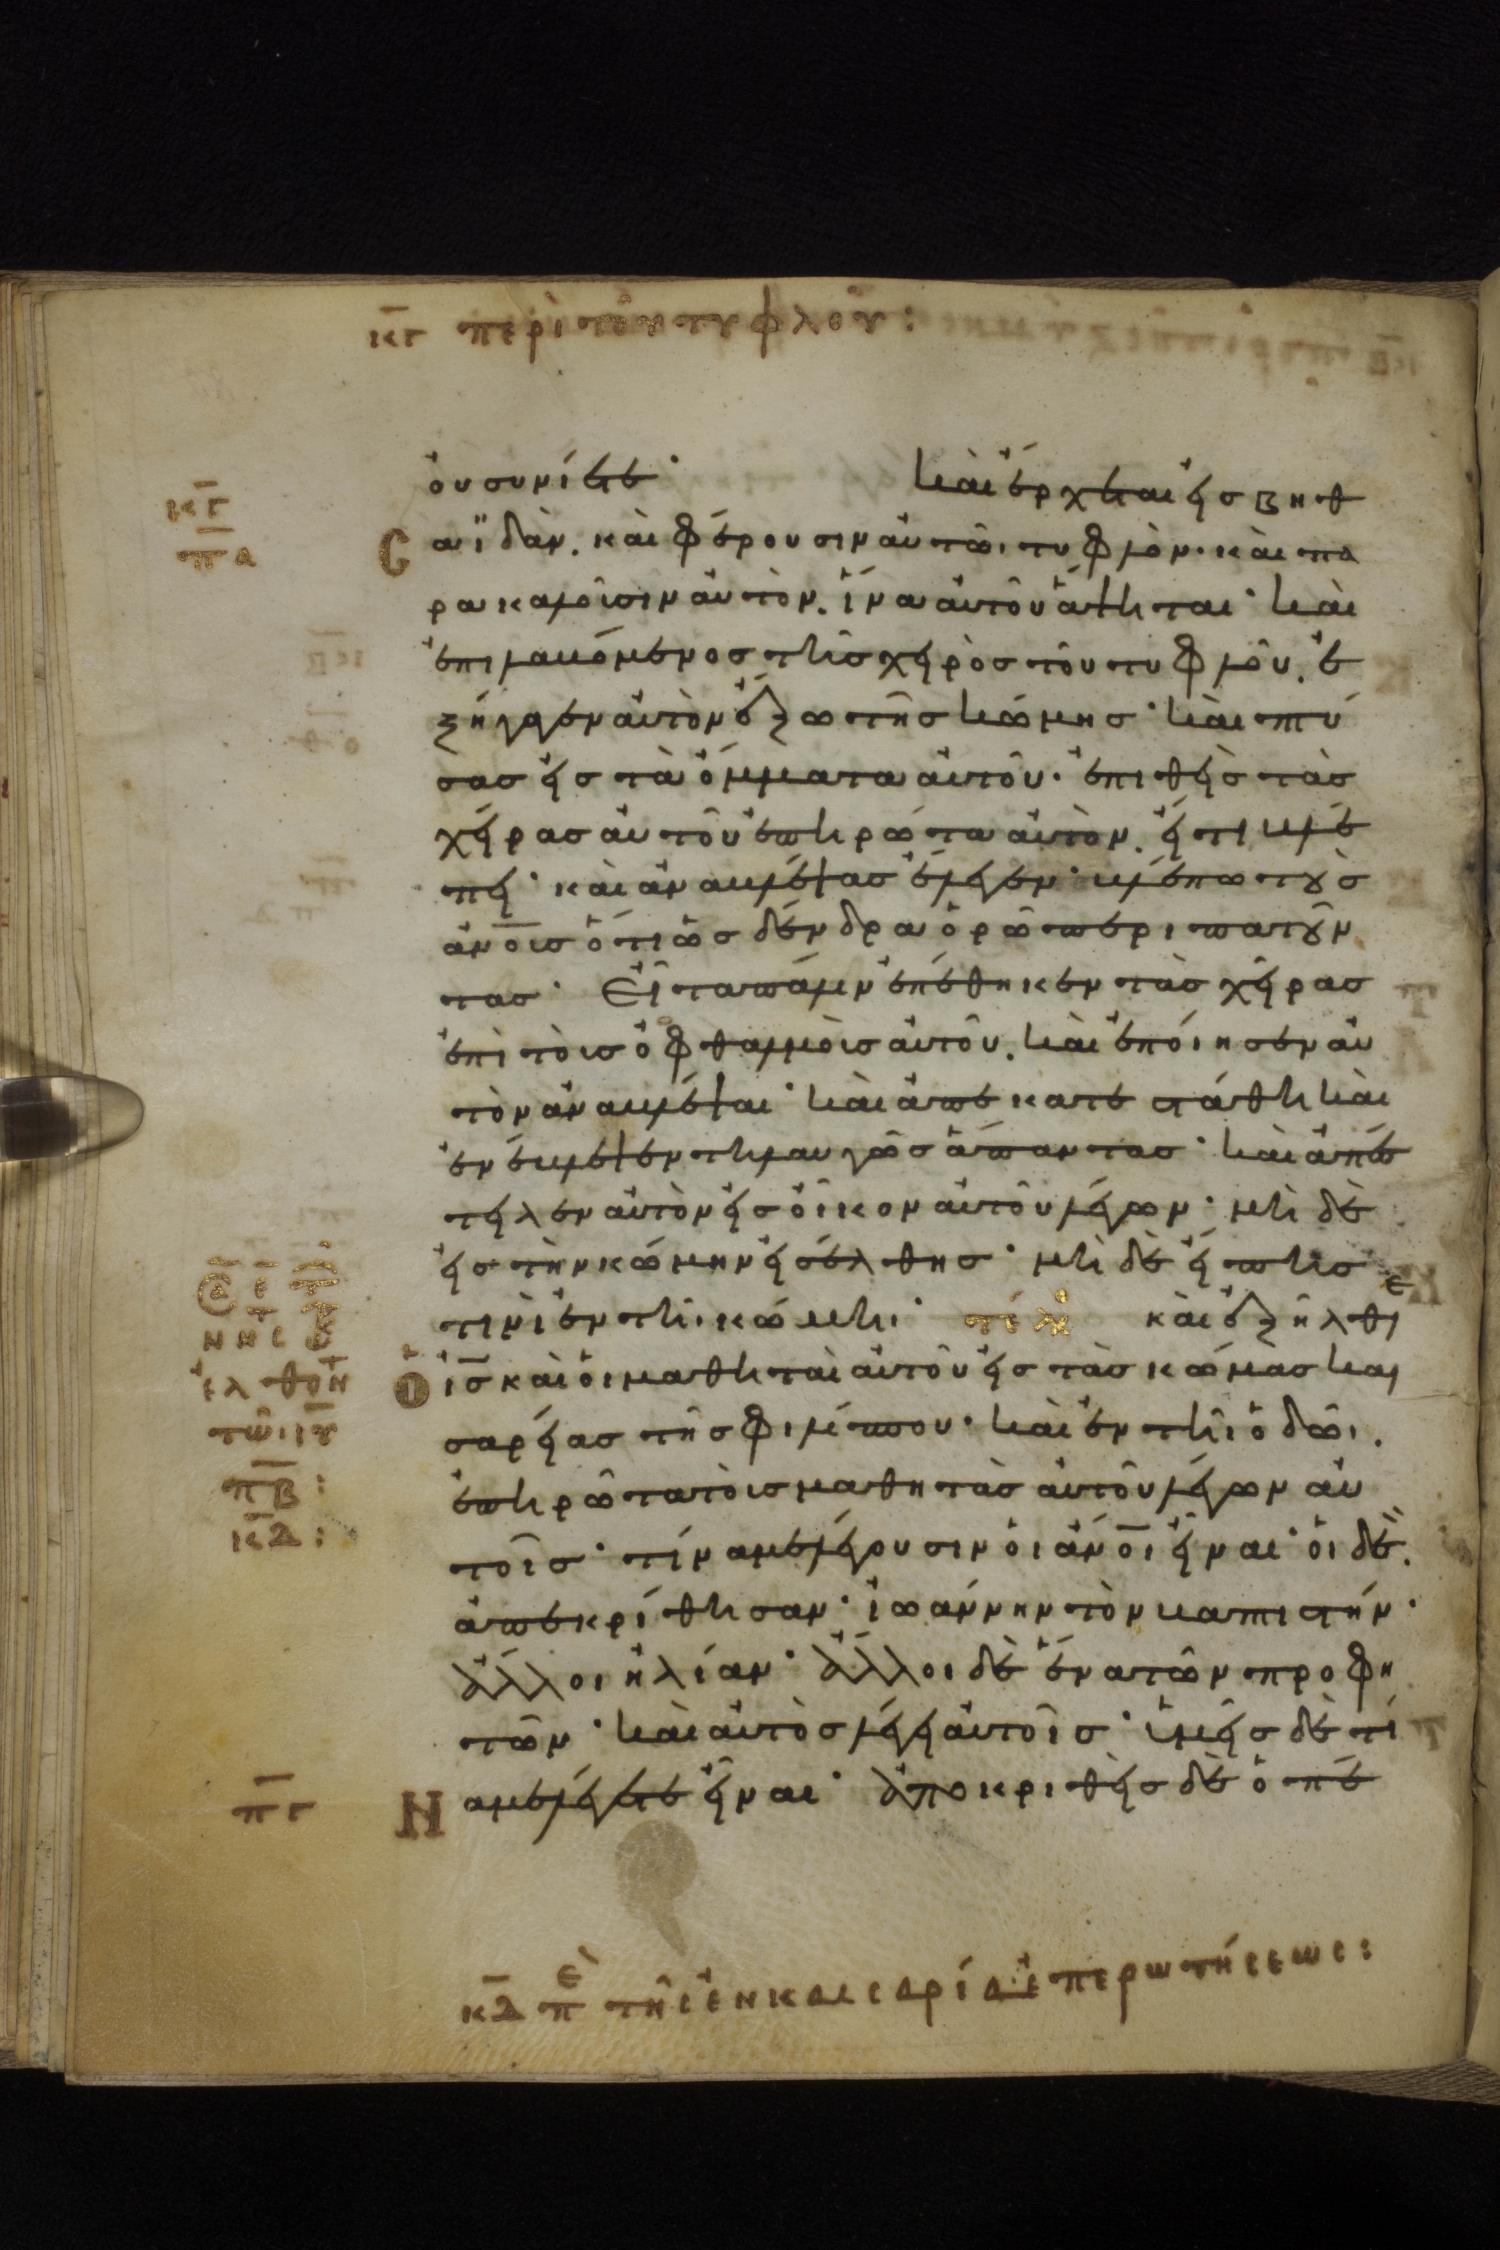 κγ περὶ τοῦ τυφλοῦ:
οὐ συνίετε· καὶ ἔρχεται εἰς βηθ
κγ
πα
σαϊδάν. καὶ φέρουσιν αὐτῶι τυφλὸν· καὶ πα
ρακαλοῦσιν αὐτὸν. ἵνα αὐτοῦ ἅψηται· καὶ
ἐπιλαβόμενος τῆς χειρὸς τοῦ τυφλοῦ. ἐ
ξήγαγεν αὐτὸν ἔξω τῆς κώμης· καὶ πτύ
σας εἰς τὰ ὄμματα αὐτοῦ· ἐπιθεὶς τὰς
χεῖρας αὐτοῦ ἐπηρώτα αὐτὸν. εἴ τι βλέ
πει· καὶ ἀναβλέψας ἔλεγεν· βλέπω τοὺς
ἀνοῖς ὅτι ὡς δένδρα ὁρῶ περιπατοῦν
τας· Εἶτα πάλιν ἐπέθηκεν τὰς χεῖρας
ἐπὶ τοὶς ὀφθαλμοὶς αὐτοῦ. καὶ ἐποίησεν αὐ
τὸν ἀναβλέψαι· καὶ ἀπεκατεστάθη καὶ
ἐνέβλεψεν τηλαυγῶς ἅπαντας· καὶ ἀπέσ
τειλεν αὐτὸν εἰς οἶκον αὐτοῦ λέγων· μὴ δὲ
εἰς τὴν κώμην εἰσέλθης· μὴ δὲ εἴπης
τινὶ ἐν τῆι κώμηι· τέλ καὶ ἐξῆλθεν
νης
ἐλθὸν
τῶι ιυ
πβ:
κδ:
ὁ ις καὶ οἱ μαθηταὶ αὐτοῦ εἰς τὰς κώμας και
σαρείας τῆς φιλίππου· καὶ ἐν τῆι ὁδῶι.
ἐπηρῶτα τοὶς μαθητὰς αὐτοῦ λέγων αὐ
τοῖς· τίνα με λέγουσιν οἱ ἄνοι εἶναι· οἱ δὲ.
ἀπεκρίθησαν· ἰωάννην τὸν βαπτιστήν·
ἄλλοι ἠλίαν· ἄλλοι δὲ ἕνα τῶν προφη
τῶν· καὶ αὐτὸς λέγει αὐτοῖς· ὑμεῖς δὲ τί
πγ
να με λέγετε εἶναι· ἀποκριθεὶς δὲ ὁ πέ
κδ πε τῆς ἐν καισαρίαι ἐπερωτήσεως: